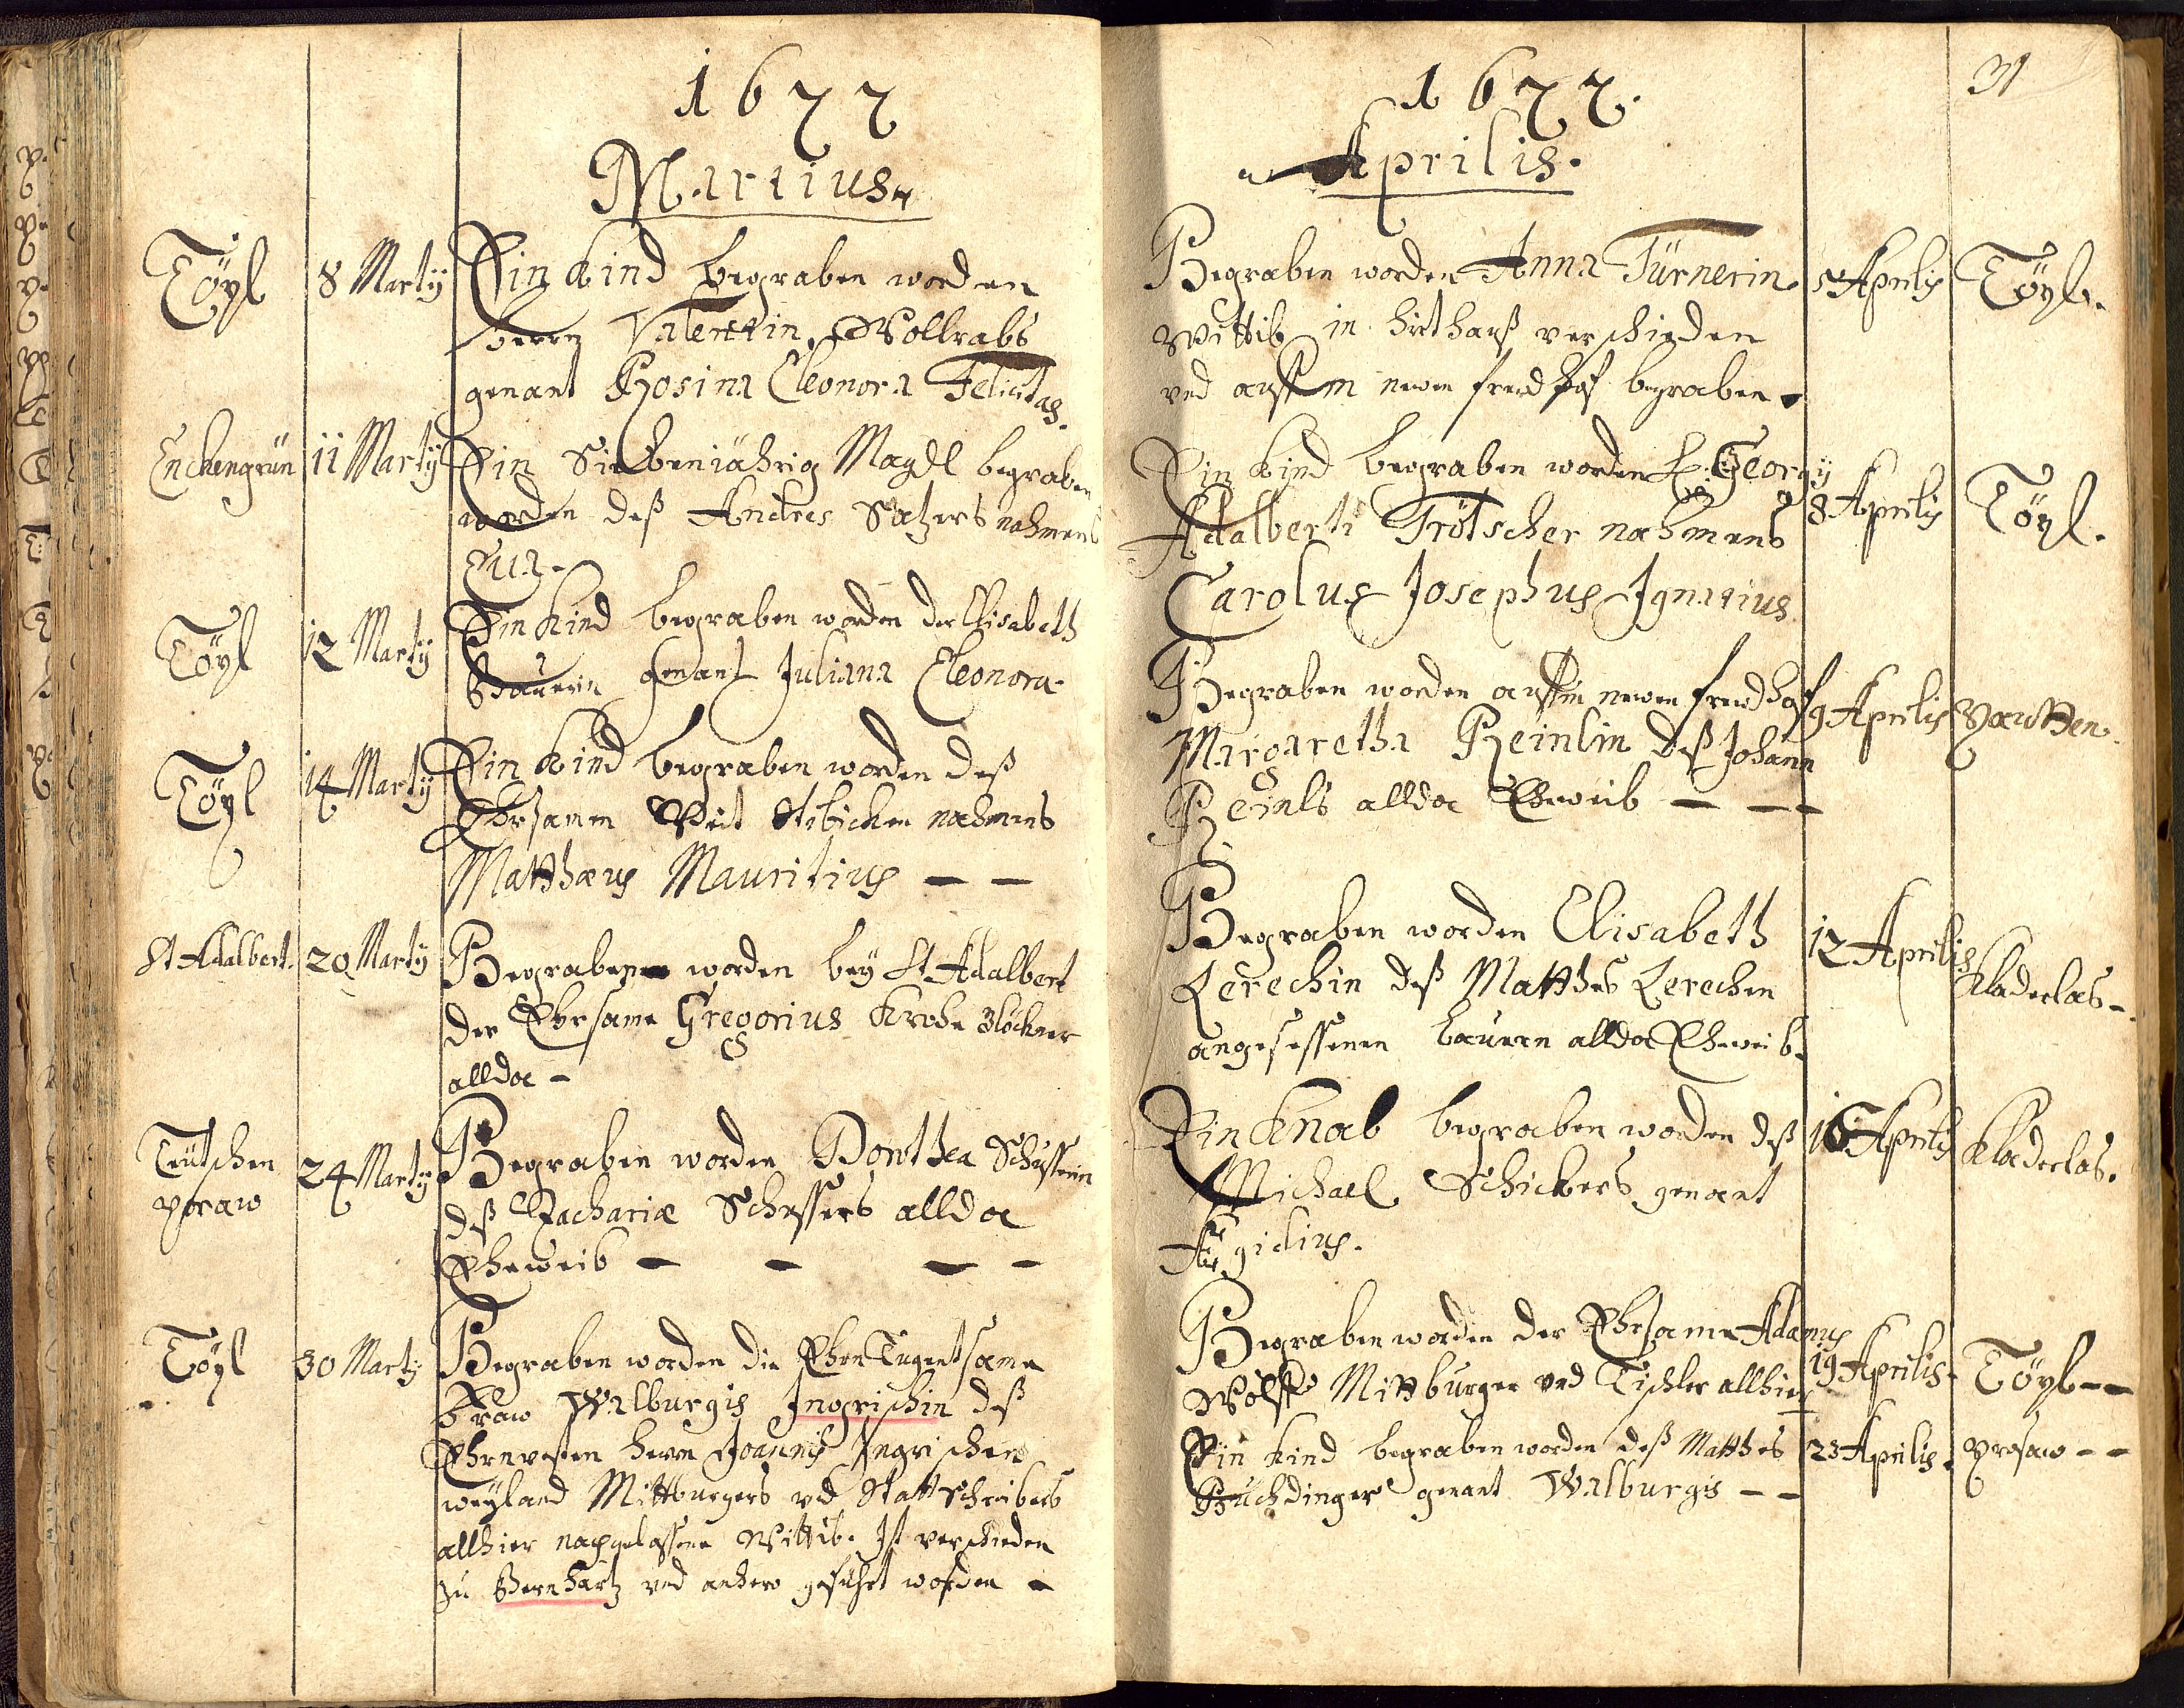 1677
Martius.
Töpl
8 Martij
Ein Kind begraben worden
Herrn Valentin Vollrabs
genant Rosina Eleonora Felicitas.
Enckengrün
11 Martij
Ein Siebeniährig Magdl begraben
worden deß Andres Satzers nahmens
Eua.
Töpl
12 Martij
Ein Kind begraben worden der Elisabeth
Bauerin genant Juliana Eleonora
Töpl
14 Martij
Ein Kind begraben worden deß
Ehrsamen Veit Stibicken nahmens
Matthæus Mauritius — —
St Adalbert.
20 Martij
Begraben worden bey St. Adalbert
der Ehrsame Gregorius Krohe Glöckner
allda —
Teütschen
poraw
24 Martij
Begraben worden Dorothea Schusserin
deß Zachariæ Schussers allda
Eheweib — — — —
Töpl
30 Martij
Begraben worden die Ehrn Tugentsame
Fraw Walburgis Ingrischin deß
Ehrnvesten Herrn Joannis Ingrischen
weyland Mittburgers vnd Statt Schreibers
allhier nachgelassene Wittib. Ist verschieden
zu Bernhartz vnd anhero geführt worden —
31
1677.
Aprilis.
Begraben worden Anna Türnerin
Wittib in Hirthauß verschieden
vnd auffm newen freudhof begraben.
5 Aprilis
Töpl.
Ein Kind begraben worden H. Georgij
Adalberti Trötscher nahmens
Carolus Josephus Ignatius.
8 Aprilis
Töpl.
Begraben worden auffm newen freudhof
Margaretha Reinlin deß Johann
Reinls allda Eheweib — — —
9 Aprilis
Begraben worden Elisabeth
Lerechin deß Matthes Lerechen
angesessenen bauern allda Eheweib.
12 Aprilis
Kladerlas —
Ein Knab begraben worden deß
Michael Schickers genant
Ægidius.
16 Aprilis
Kladerlas.
Begraben worden der Ehrsame Adamus
Wolff Mittburger vnd Tischler allhier
19 Aprilis.
Töpl — —
Ein Kind begraben worden deß Matthes
Buchdinger genant Walburgis — —
23 Aprilis.
prosaw — —